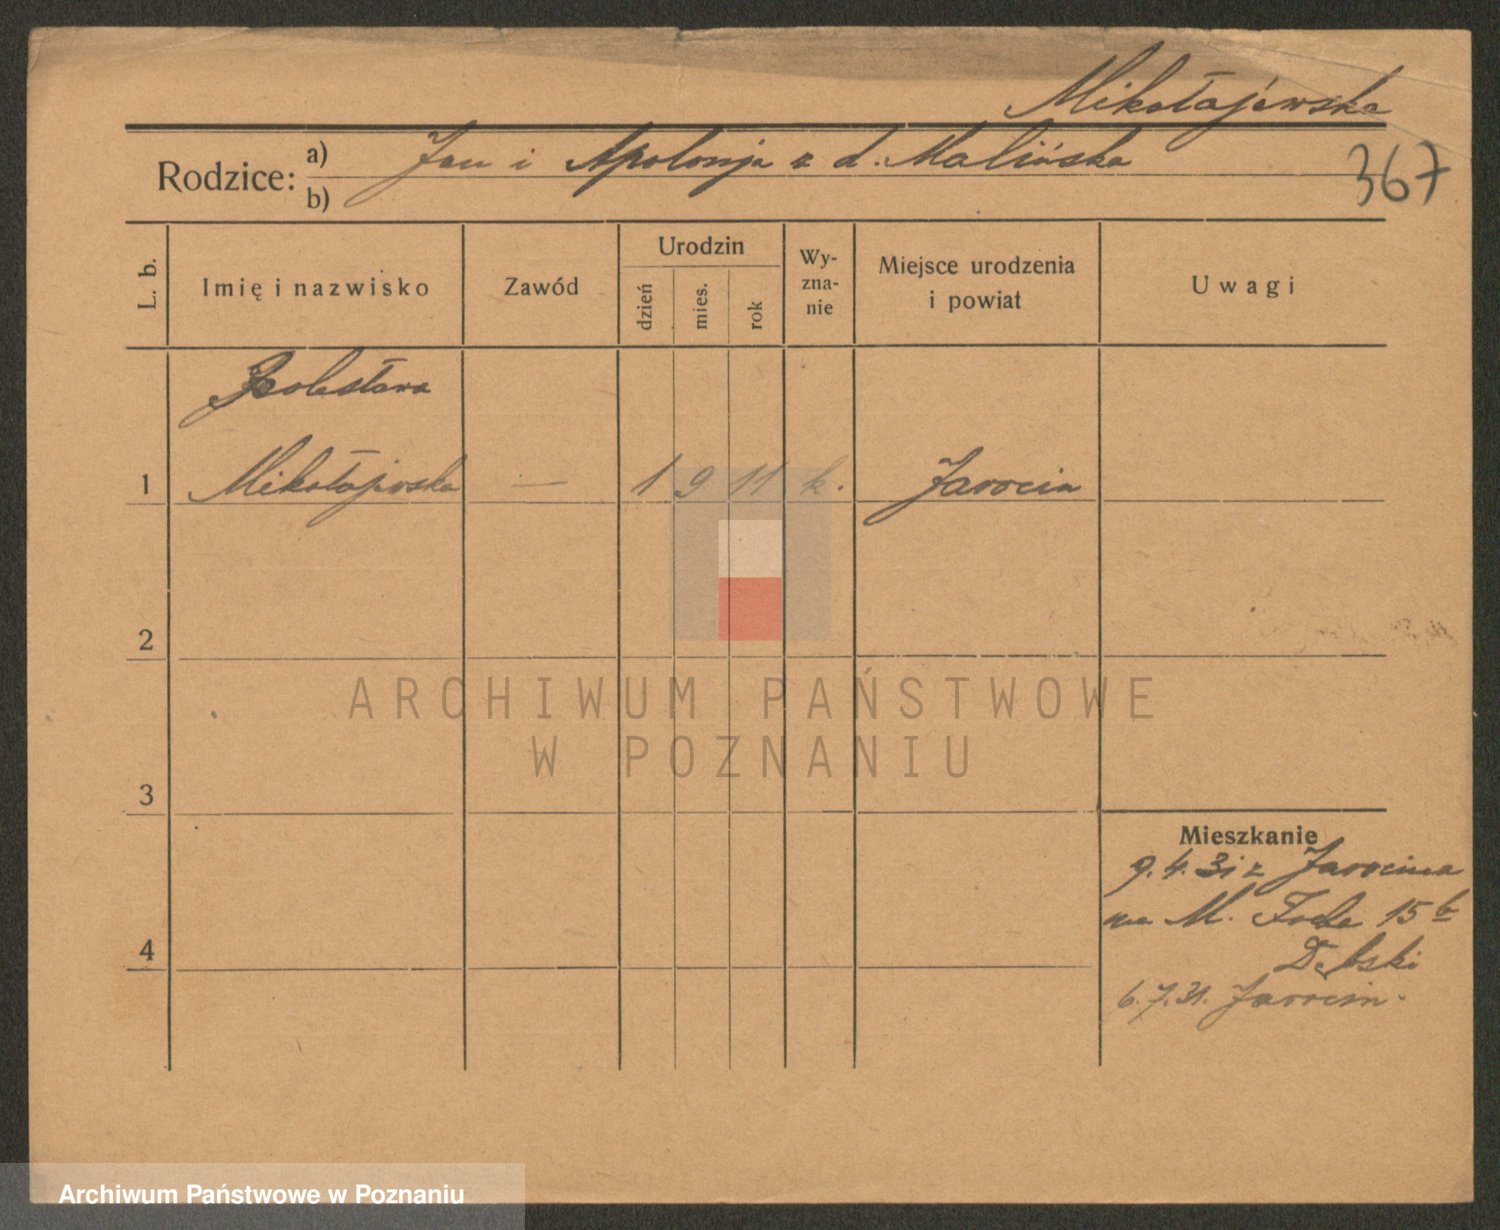 Mikołajewska
Rodzice: a) Jan i Apolonja z d. Malińska
b)
367
L. b. Imię i nazwisko Zawód Urodzin dzień mies. rok Wyznanie Miejsce urodzenia i powiat Uwagi
Bolesława
1 Mikołajewska — 1 9 11 k. Jarocin
2
ARCHIWUM PAŃSTWOWE
W POZNANIU
3
Mieszkanie
9.4.31 z Jarocina
na M. 15 b
Dębski
4
6.7.31. Jarocin.
Archiwum Państwowe w Poznaniu